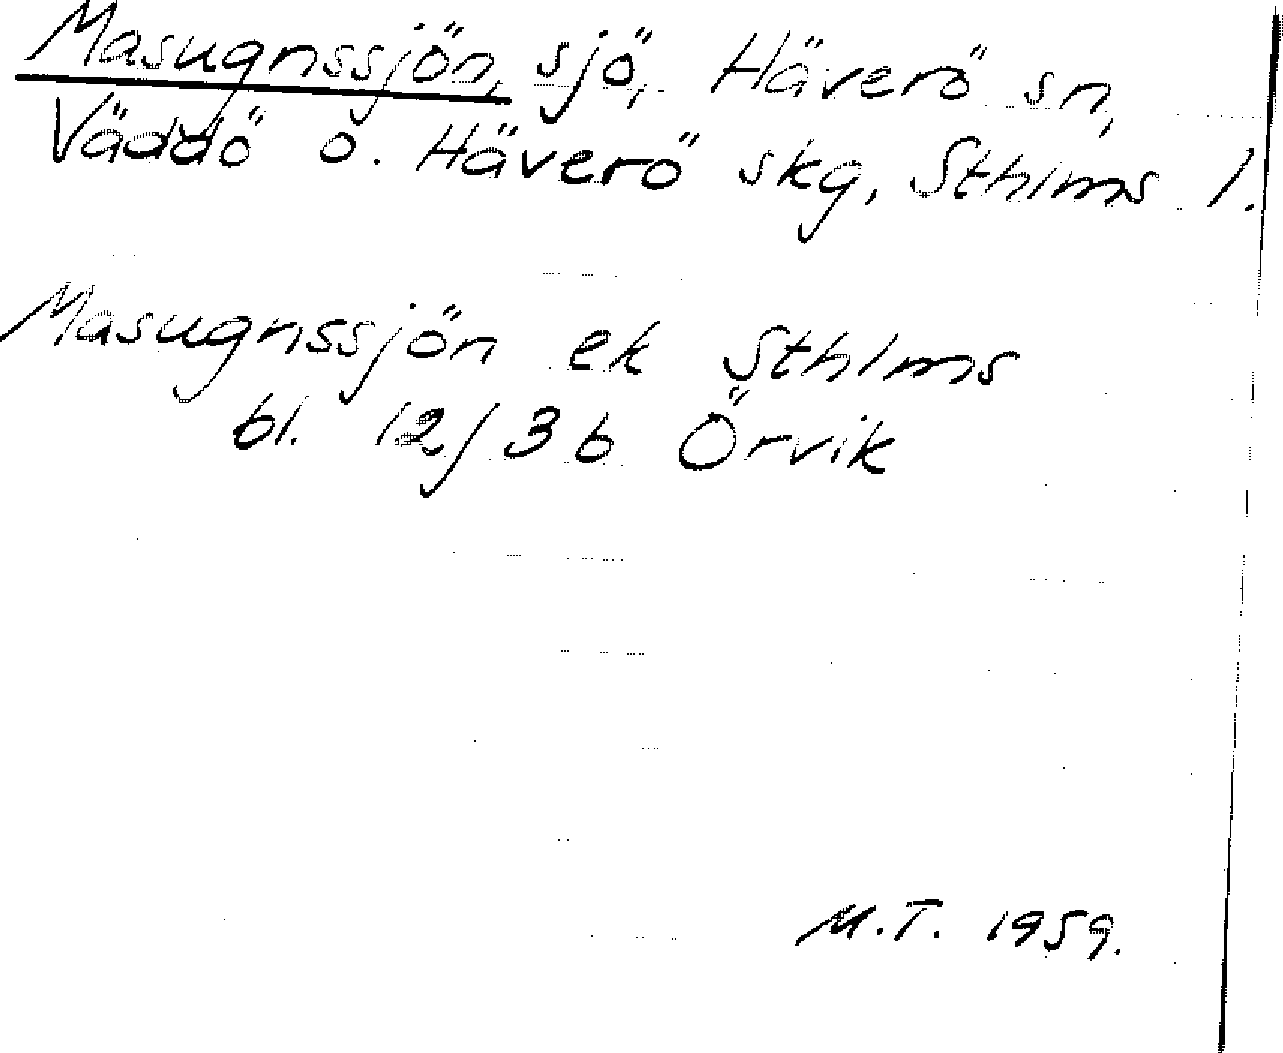 Masugnssjön, sjö, Häverö sn,
Väddö o. Häverö skg, Sthlms l.
Masugnssjön ek Sthlms
bl. 12J 3b Örvik
M.T. 1959.